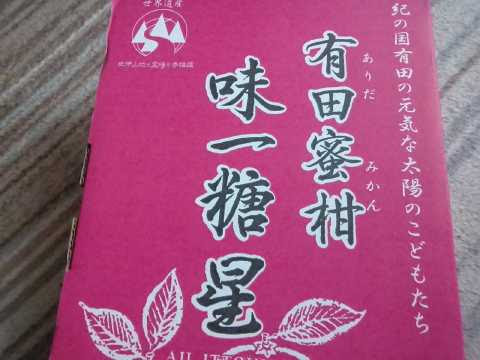 紀の国有田の元気な太陽のこどもたち
有田蜜柑
ありだ みかん
味一糖星
世界遺産
紀伊山地の霊場と参詣道